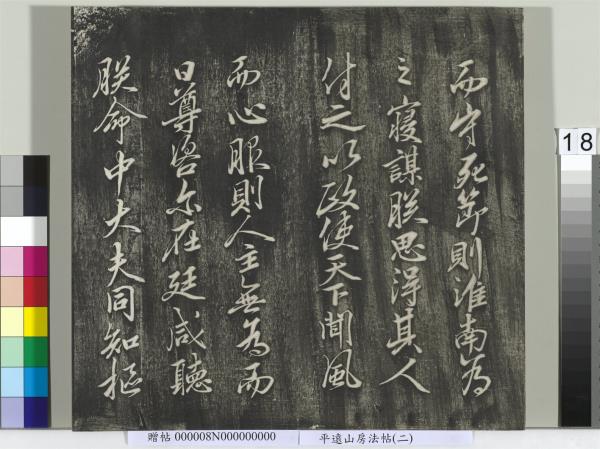 而守死節則淮南為
之寢謀朕思得其人
付之以政使天下聞風
而心服則人主無為而
日尊咨尔在廷咸聽
朕命中大夫同知樞
18
贈帖 000008N000000000
平遠山房法帖(二)